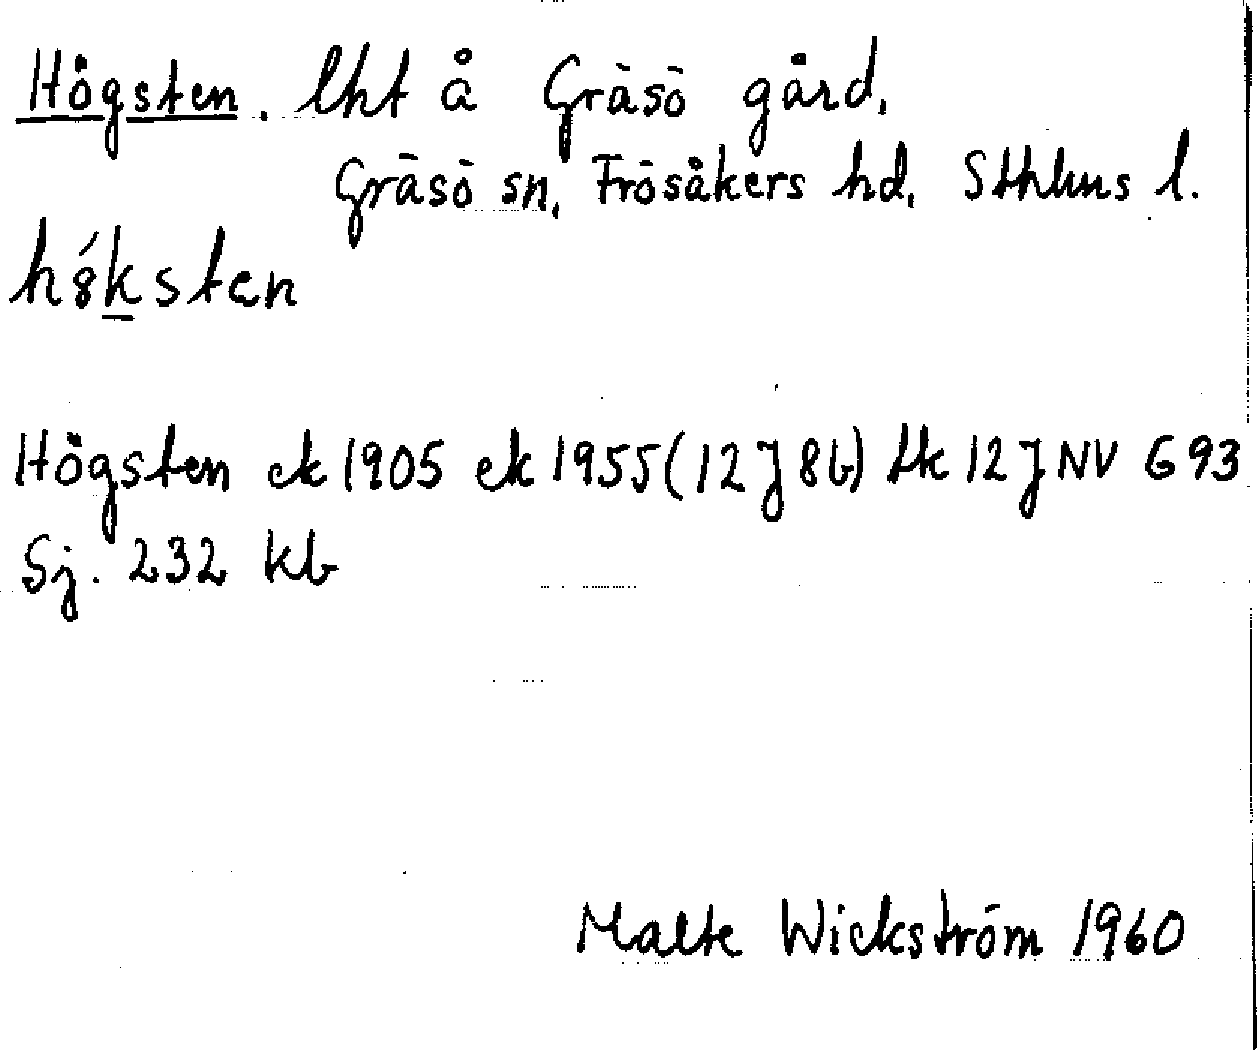 Högsten. lht å Gräsö gård,
Gräsö sn, Frösåkers hd, Sthlms l.
hö́ksten
Högsten ek 1905 ek 1955 (12 J 8b) tk 12 J NV 693
Sj. 232 kb
Malte Wickström 1960